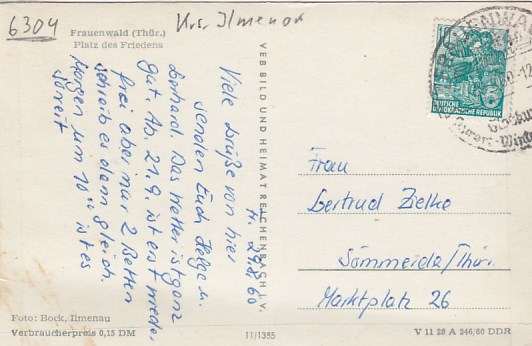 6304
Krs. Ilmenau
Frauenwald (Thür.)
Platz des Friedens
Viele Grüße von hier
senden Euch Helga u.
Gerhard. Das Wetter ist ganz
gut. Ab 21.9. ist erst wieder
frei aber nur 2 Betten
schreib es dem gleich.
Morgen um 10⁰⁰ ist es
soweit
VEB BILD UND HEIMAT REICHENBACH I. V.
DEUTSCHE
DEMOKRATISCHE REPUBLIK
10
Frau
Gertrud Zielke
Sömmerda/Thür.
Marktplatz 26
Foto: Bock, Ilmenau
Verbraucherpreis 0,15 DM
11/1385
V 11 28 A 246/60 DDR